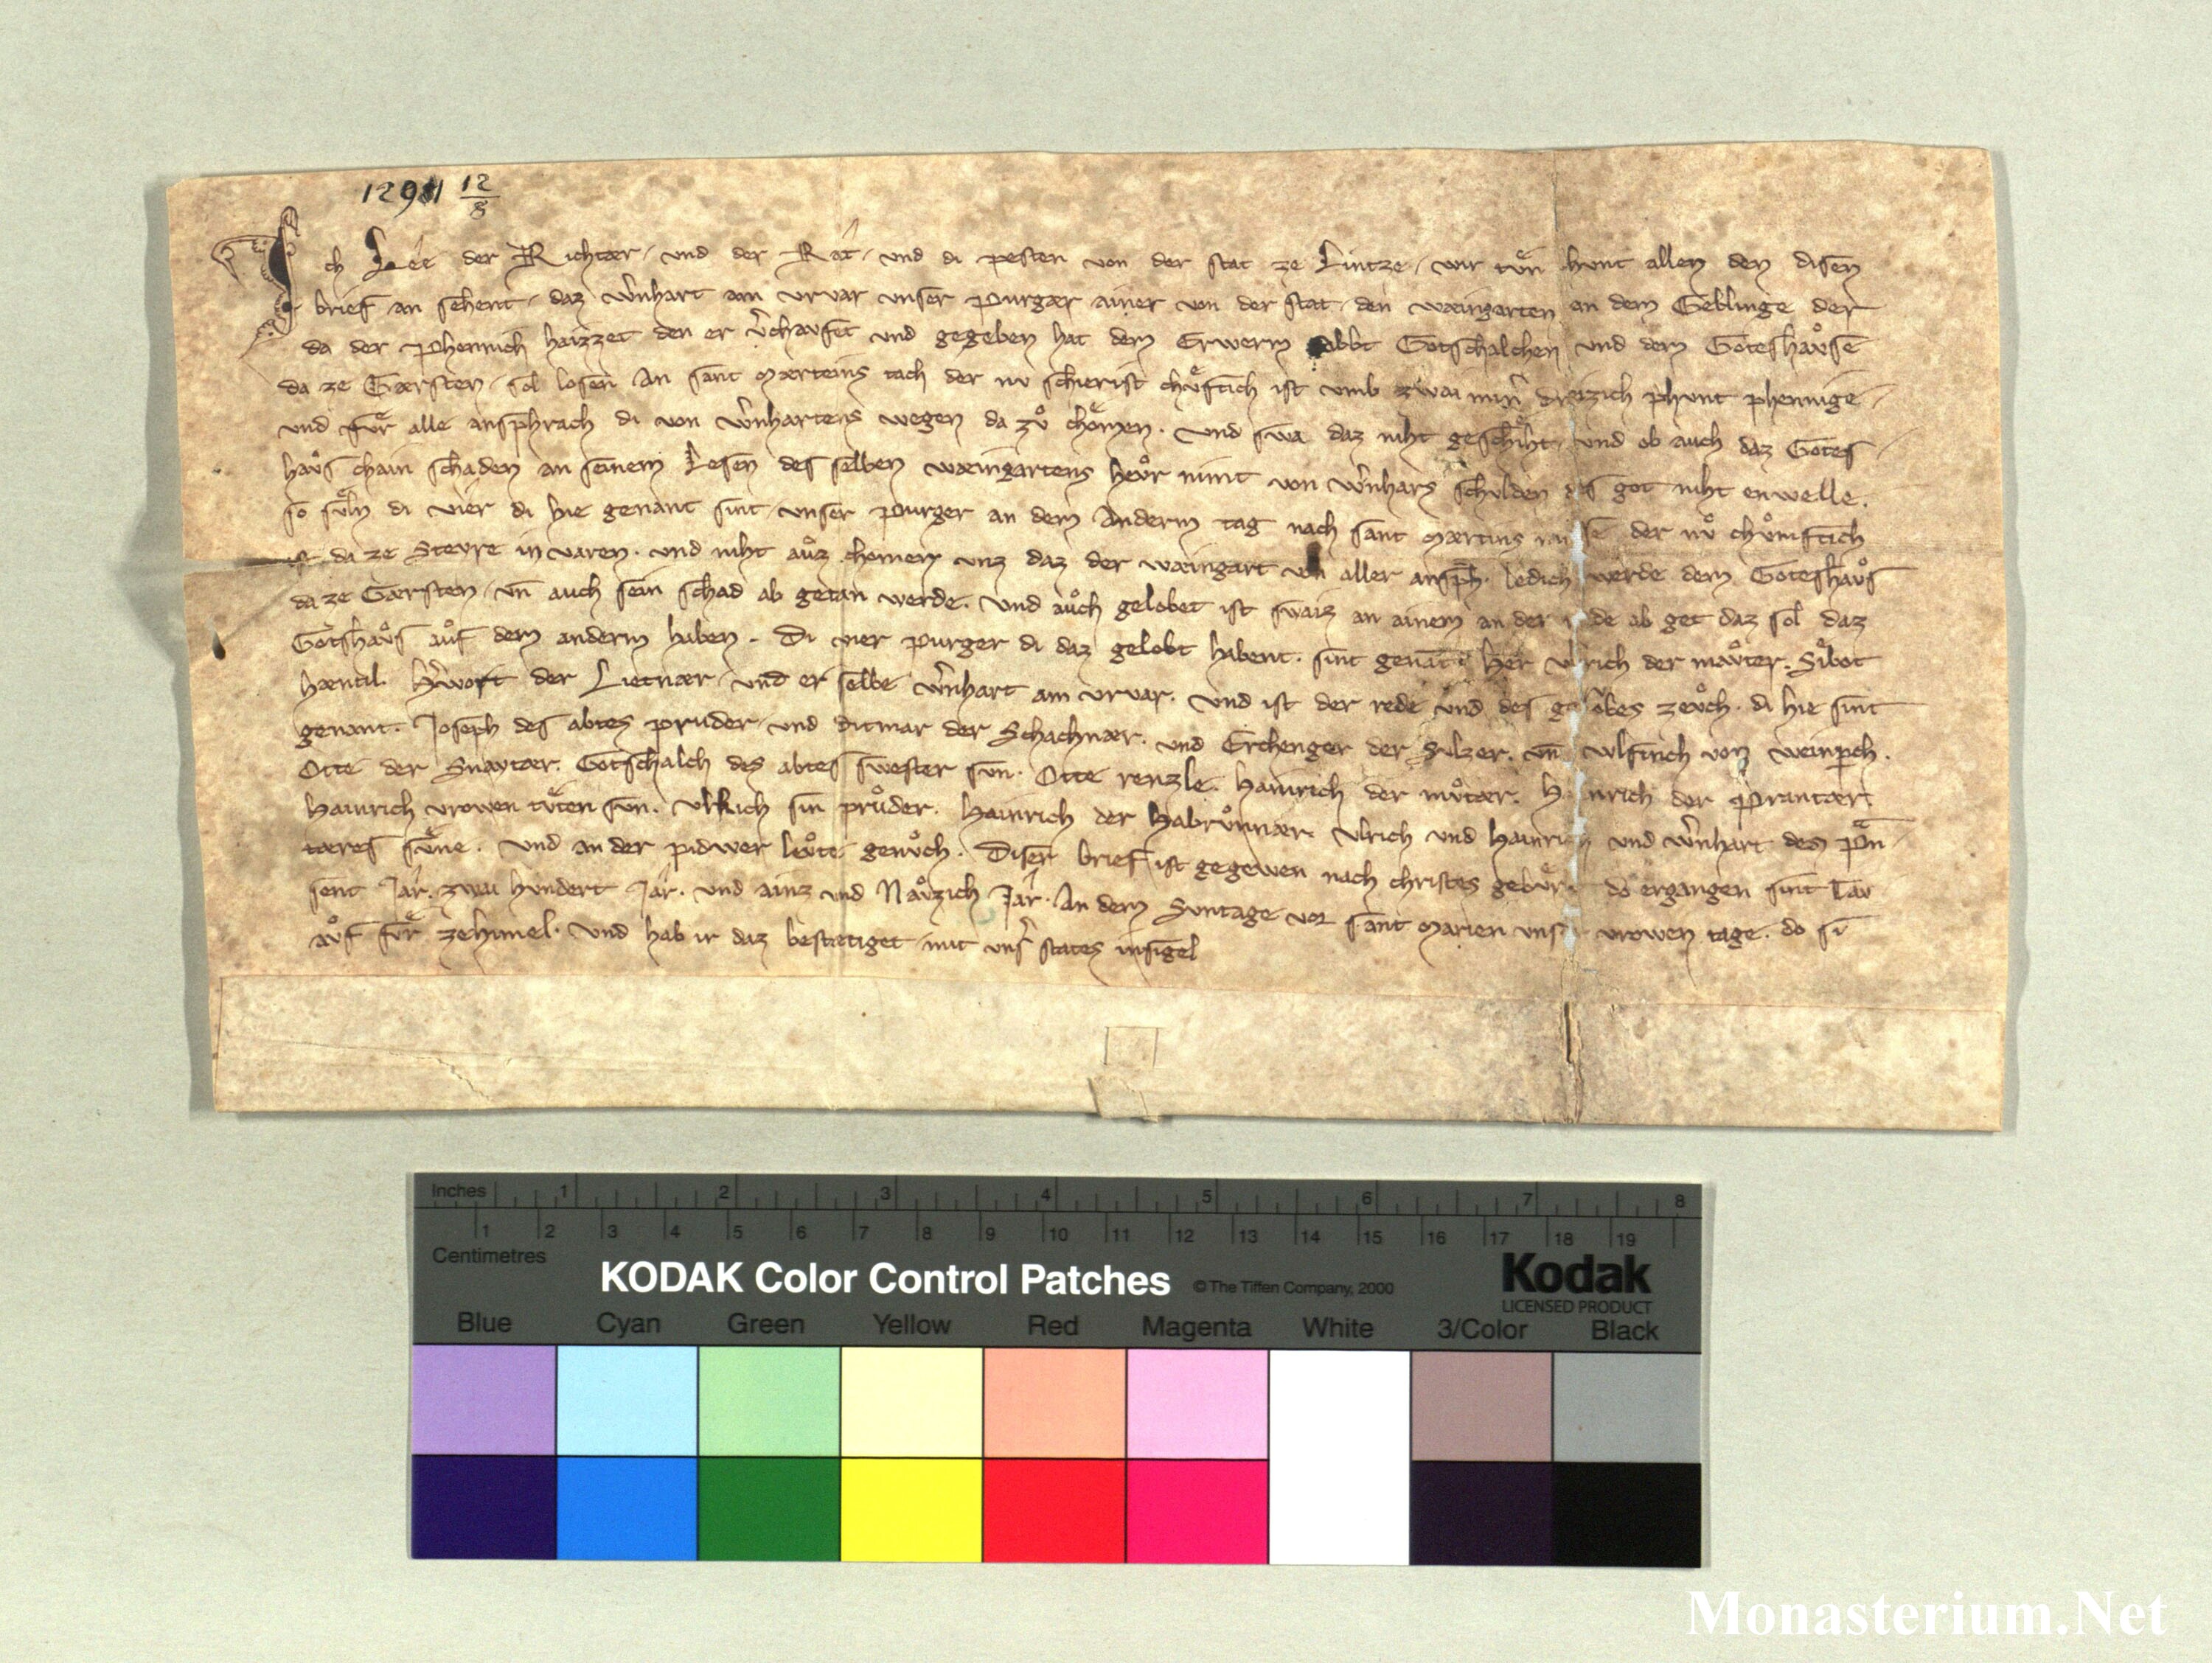 1291 12/8
Ich Lee der Richtær, und der Rat, und di pesten von der stat ze Lintze, wir tuͤn chunt allen den disen
brief an sehent, daz Wernhart am urvar unser purgær ainer von der stat, den wæingarten an dem Geblinge der
da der phennich haizzet den er v̾chavfet und gegeben hat dem Erwerm abbt Gotschalchen und dem Goteshavͦse
da ze Gærsten, sol losen An sant Mærteins tach der nv schierist chvͤftich ist umb zwai min̾ dreizich phunt phennige,
und fuͤr alle ansphrach di von W̾nhartens wegen da zuͦ choͤmen. Und swa daz niht geschiht, und ob auch daz Gotes,
havͦs chain schaden an seinem Lesen des selben wæingartens hevͦr nimt von W̾nharts schulden des got niht enwelle.
so suͤln di vier di hie genant sint, unser purger an dem Anderm tag nach sant Mærtins der nvͦ chuͦmftich
ist da ze Stevre in varen. und niht auͦz chomen unz daz der wæingart von aller ansph̄. ledich werde dem Goteshavͦs
da ze Gærsten, vn̄ auch sein schad ab getan werde. Und auͦch gelobet ist swaiz an ainem an der ab get daz sol daz
Gotshavͦs auͦf dem anderm haben. Di vier purger di daz gelobt habent. sint genāt. Her Ulrich der mavͦter. Sibot
hæntil. H̾wort der Lietnær, und er selbe W̾nhart am urvar. Und ist der rede und des gelobes zevͦch. di hie sint
genant. Joseph des abtes pruder, und Ditmar der Schachnær. und Erchenger der Sulzer. vn̄ Ulfinch von Weinpch.
Otte der Snaytær. Gotschalch des abtes swester sun. Otte renzle. Hainrich der muͦtær. Hainrich der Prantær.
Hainrich vrowen tuͤten sun. Ulrich sin pruͦder. Hainrich der Habruͦnnær. Ulrich und Hainrich und W̾nhart des pān,
tæres suͤne. und ander pidwer levͦte genuͦch. Diser brief ist gegewen nach christes gebuͤrt do ergangen sint Tav
sent Jar. zwai hundert Jar. und ainz und Navͦzich Jar. An dem Svntage vor sant Marien unser vrowen tage. do si
auͦf fuͤr ze himel. Und hab ir daz bestætiget mit uns̾ states insigel
Inches 1 2 3 4 5 6 7 8
1 2 3 4 5 6 7 8 9 10 11 12 13 14 15 16 17 18 19
Centimetres
KODAK Color Control Patches © The Tiffen Company, 2000 Kodak
LICENSED PRODUCT
Blue Cyan Green Yellow Red Magenta White 3/Color Black
Monasterium.Net